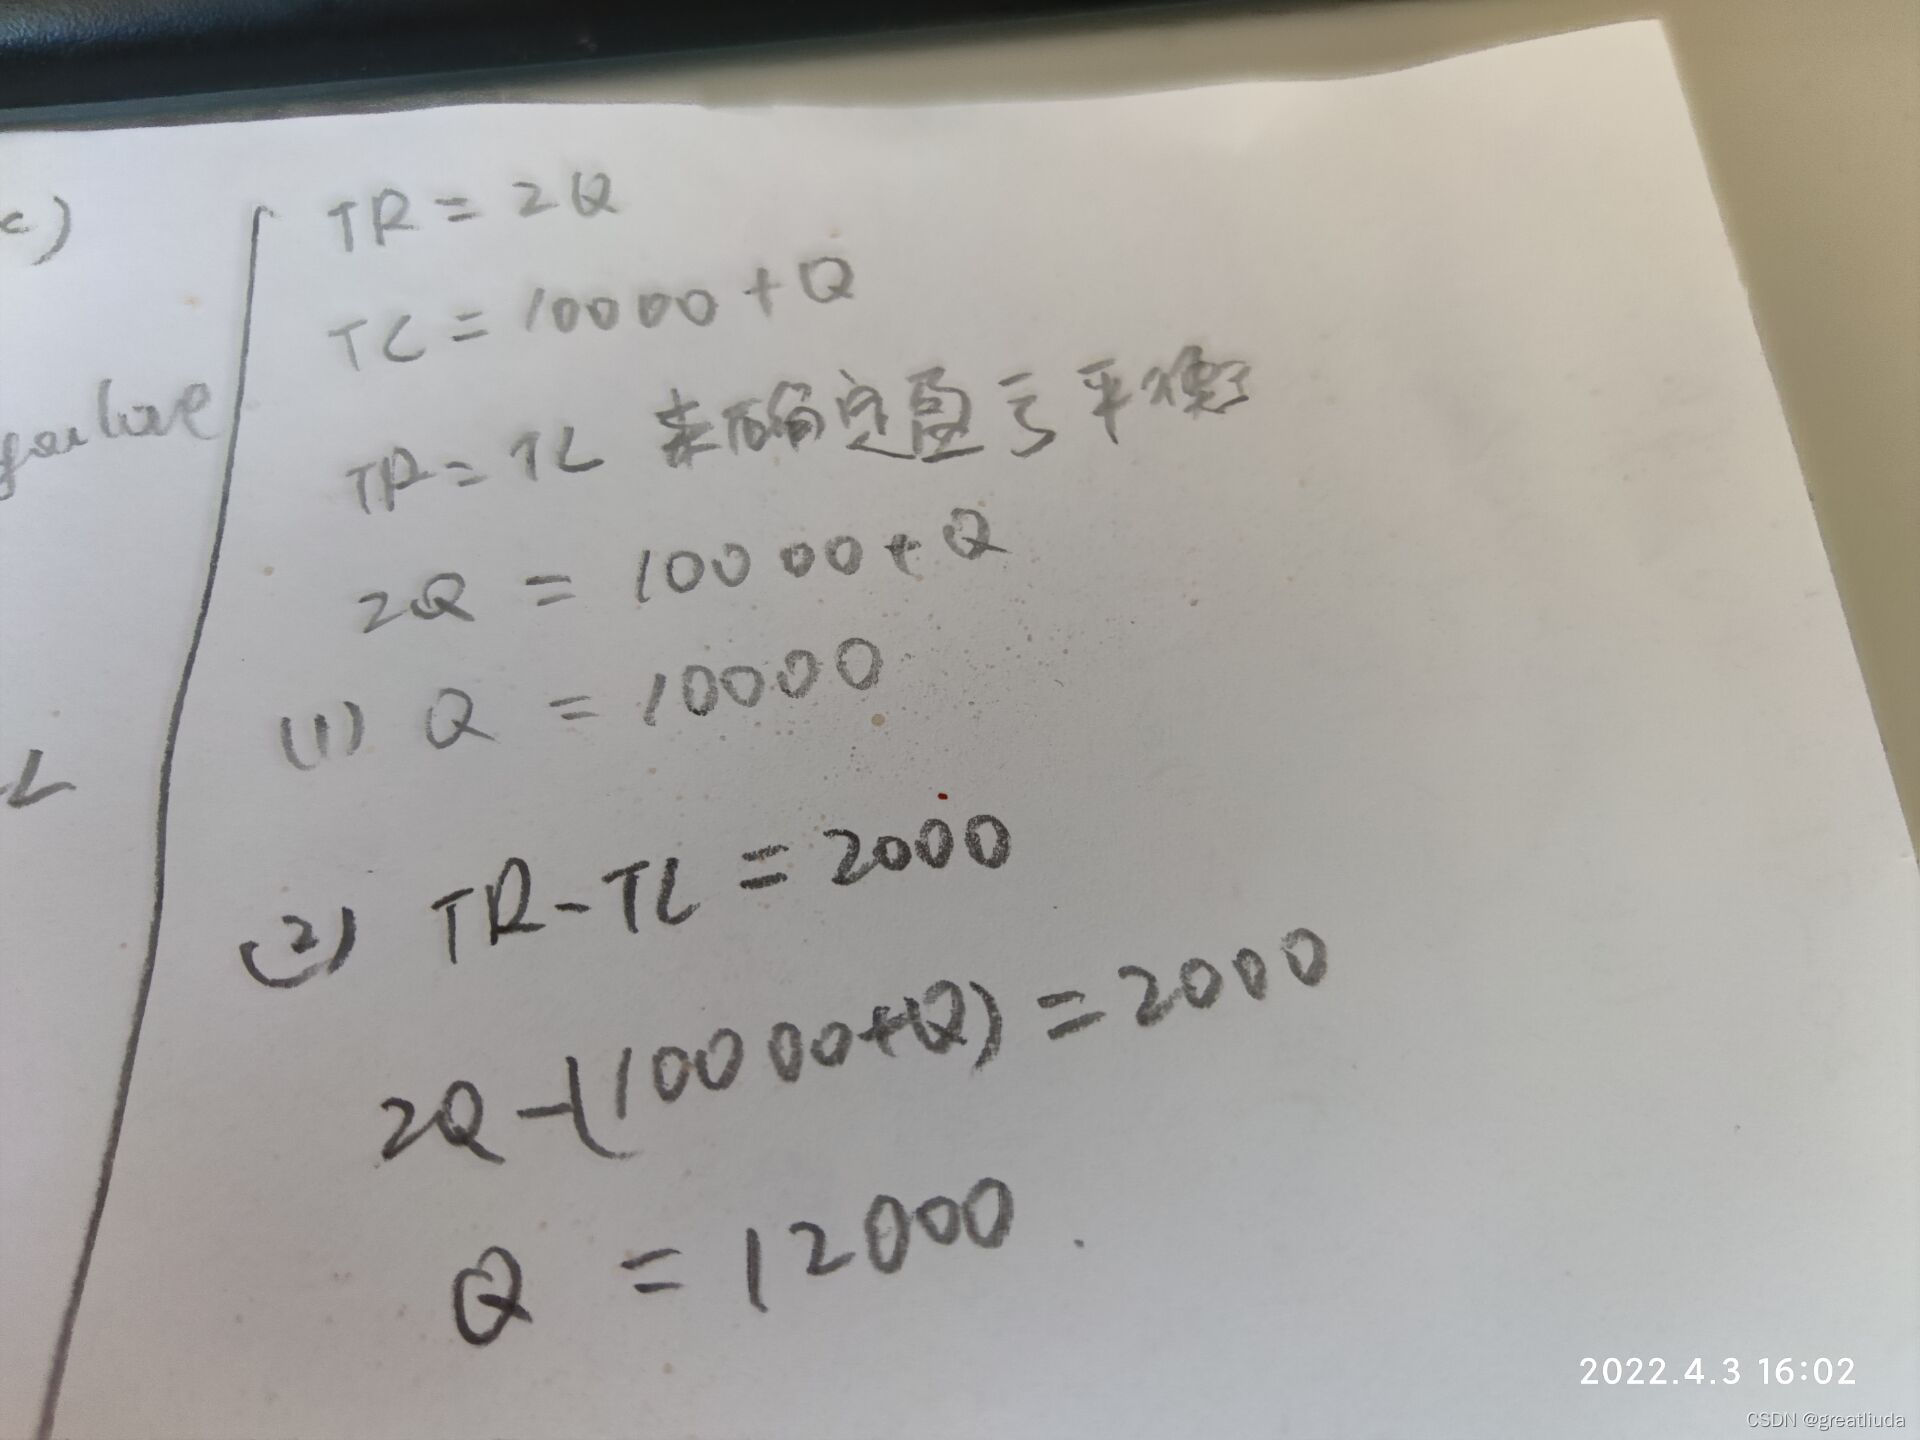 c)
TR = 2Q
TC = 10000 + Q
TR = TC 来确定盈亏平衡
2Q = 10000 + Q
(1) Q = 10000
L
(2) TR - TC = 2000
2Q - (10000 + Q) = 2000
Q = 12000.
2022.4.3 16:02
CSDN @greatliuda